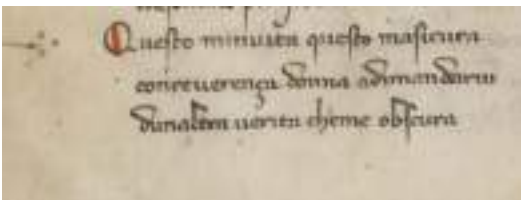 Questo minuita questo masicura
conreuerença donna adimandarui
dunaltra uerita cheme obscura